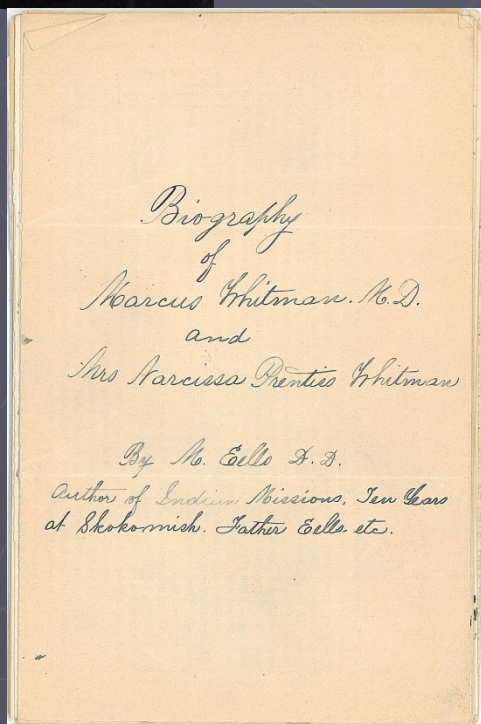 Biography
of
Marcus Whitman. M.D.
and
Mrs Narcissa Prentiss Whitman
By M. Eells D.D.
Author of Indian Missions, Ten Years
at Skokomish. Father Eells etc.